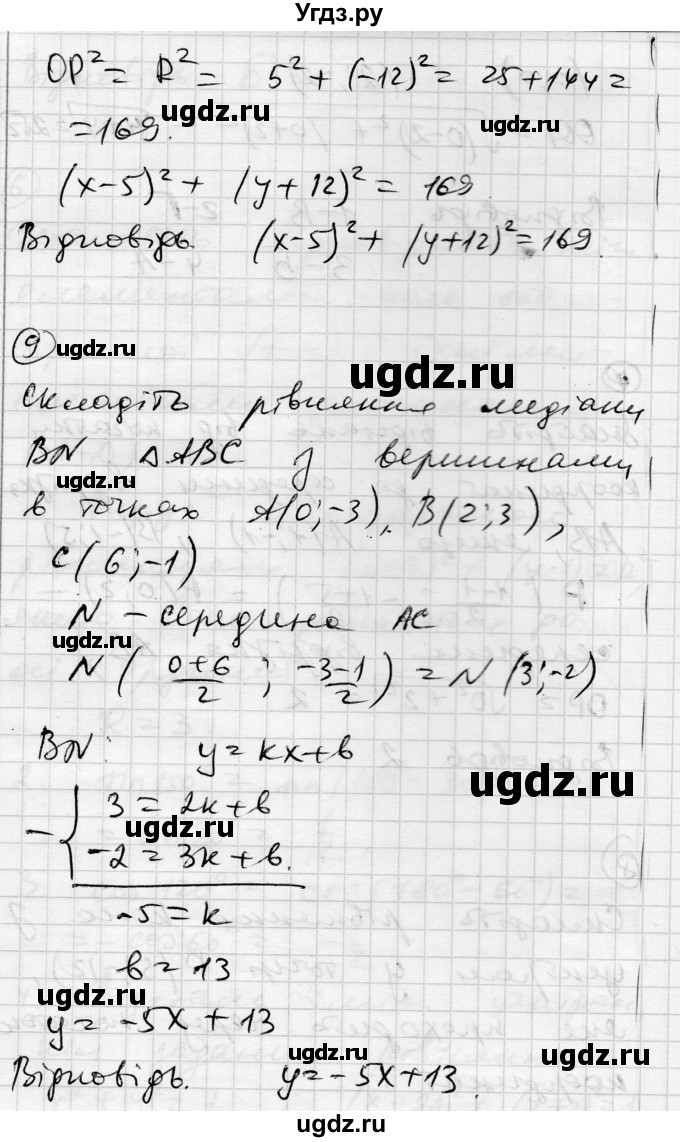 Угдз.ру
OP² = R² = 5² + (-12)² = 25 + 144 =
ugdz.ru ugdz.ru
= 169.
(x-5)² + (y+12)² = 169.
Відповідь. (x-5)² + (y+12)² = 169.
9 ugdz.ru
ugdz.ru
Складіть рівняння медіани
BN △ABC з вершинами
ugdz.ru
в точках A(0;-3), B(2;3),
C(6;-1)
N - середина AC
ugdz.ru
N(0+6/2; -3-1/2) = N(3;-2)
BN: y = kx+b
ugdz.ru
- { 3 = 2k+b
ugdz.ru
-2 = 3k+b.
-5 = k
b = 13
ugdz.ru
y = -5x + 13
ugdz.ru ugdz.ru
Відповідь. y = -5x+13.
Угдз.ру